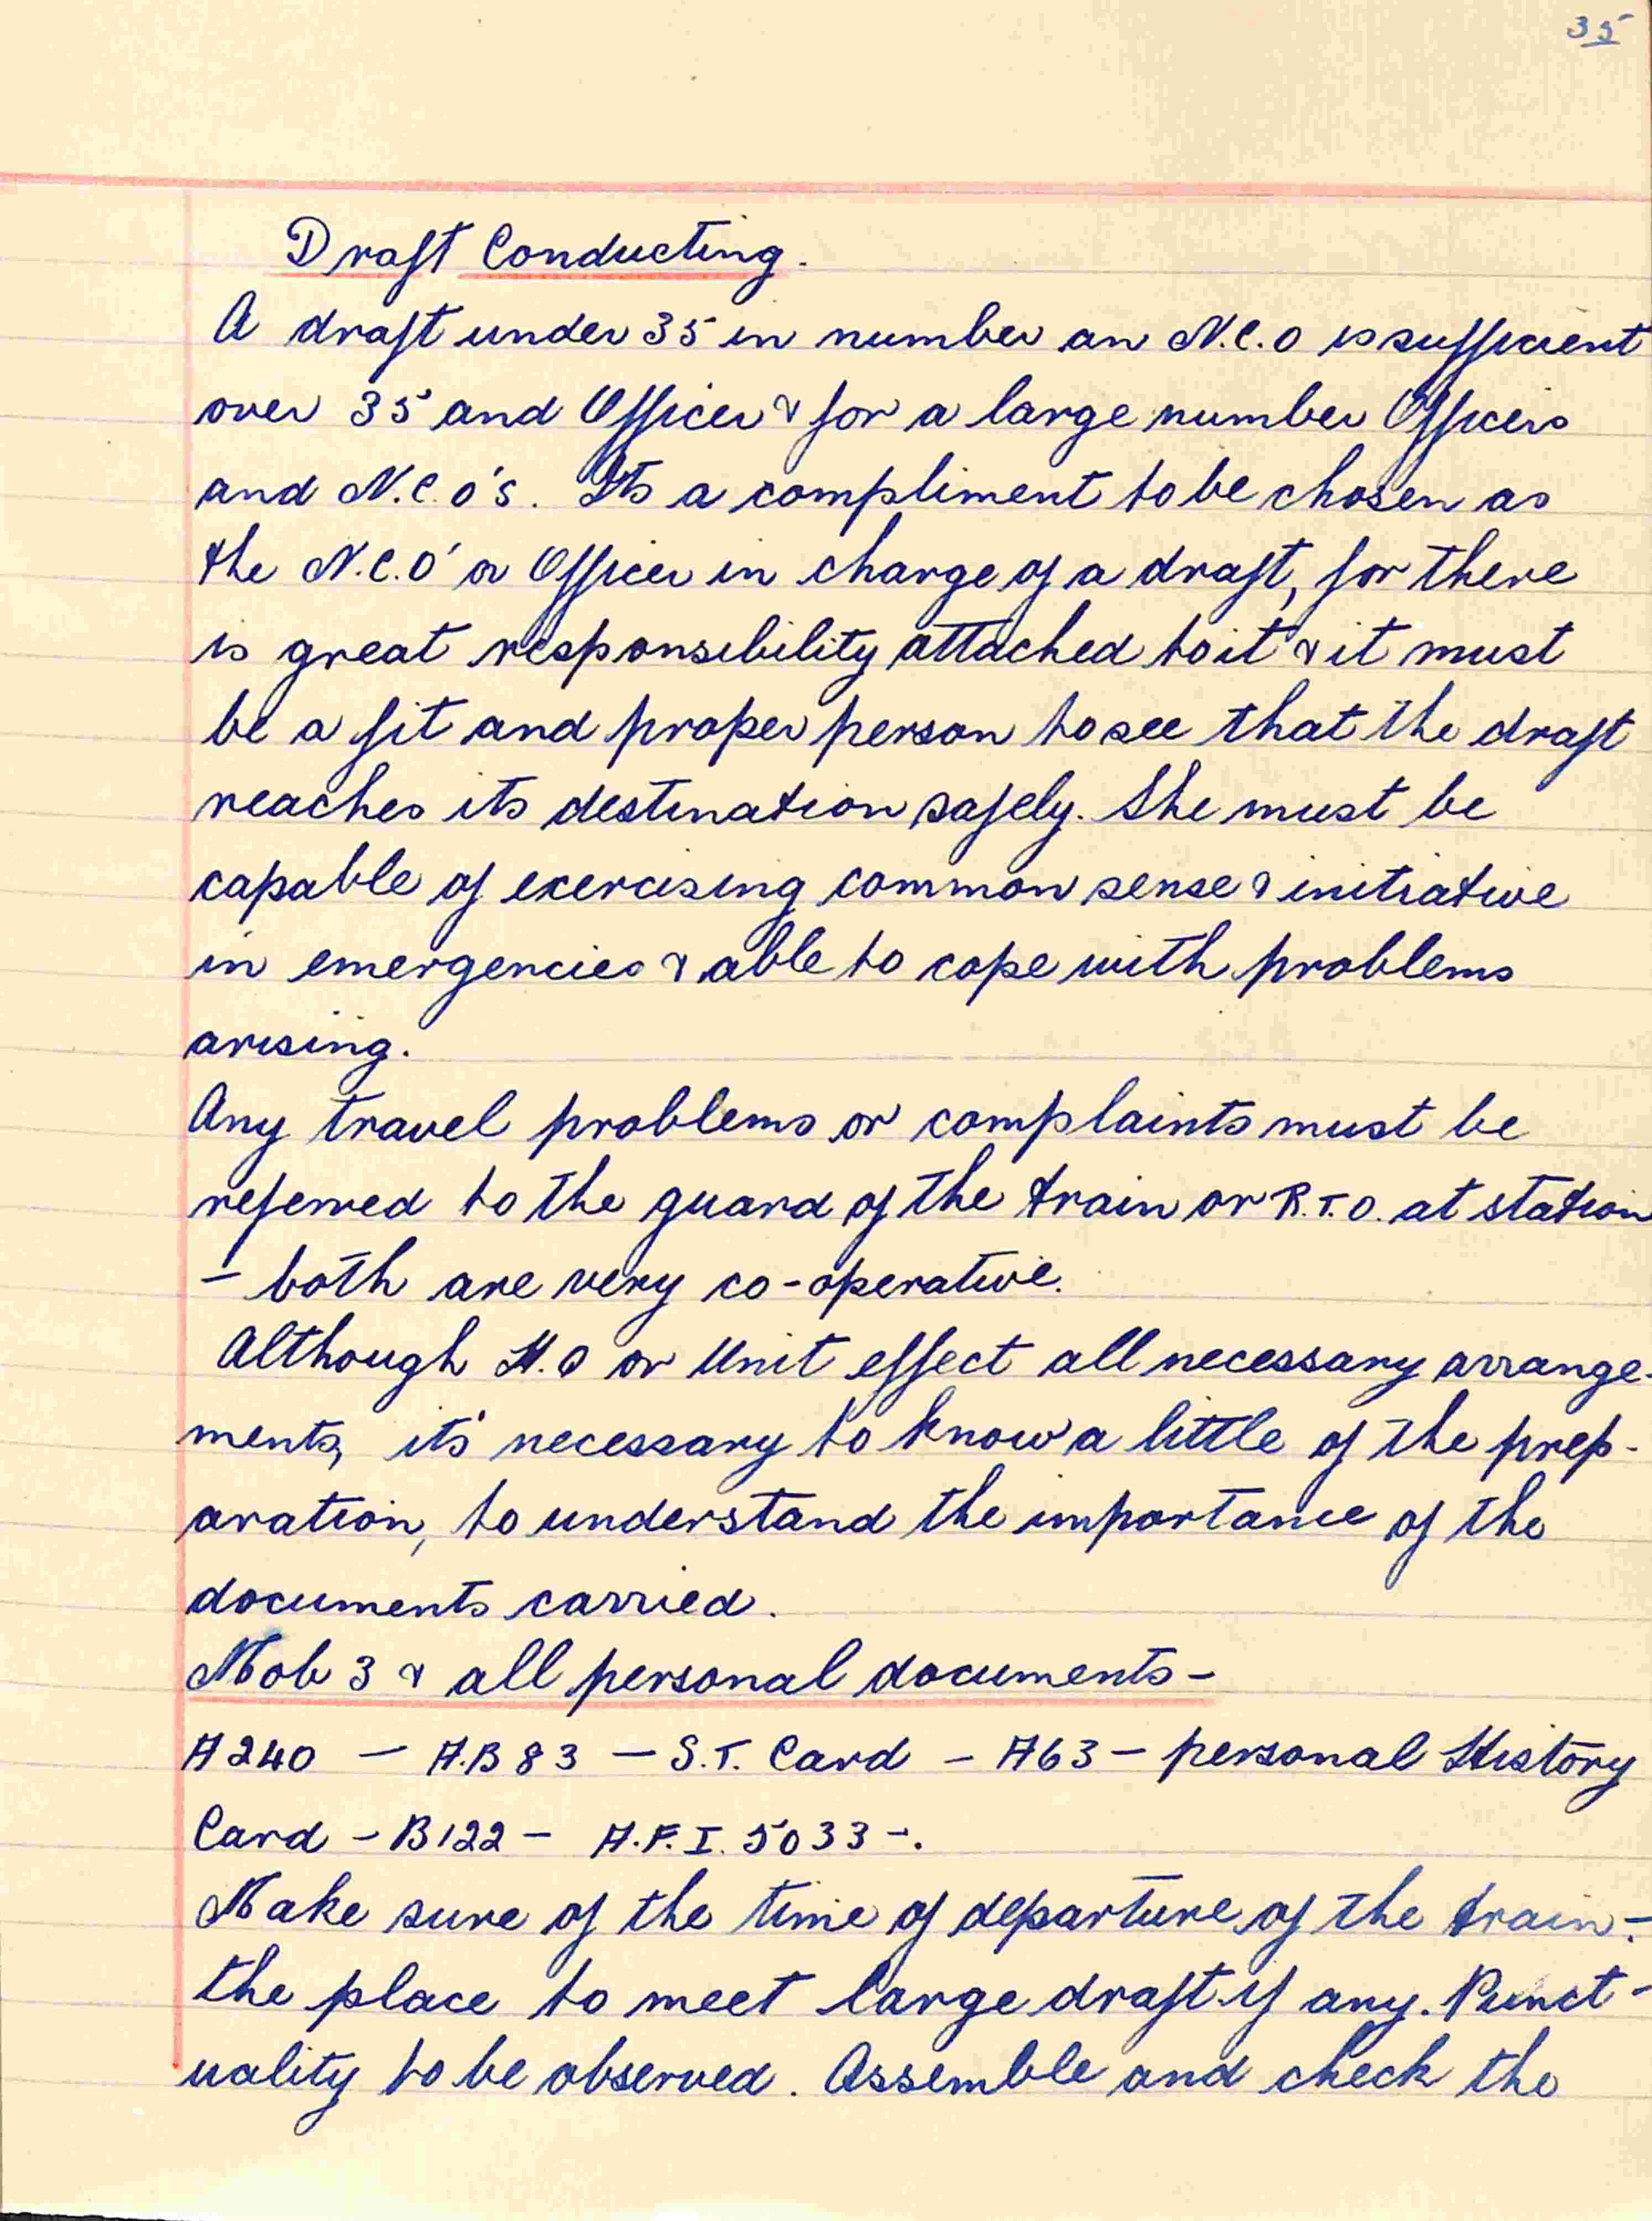 35
Draft Conducting.
A draft under 35 in number an N.C.O is sufficient
over 35 and Officer & for a large number Officers
and N.C.O's. Its a compliment to be chosen as
the N.C.O' or Officer in charge of a draft, for there
is great responsibility attached to it & it must
be a fit and proper person to see that the draft
reaches its destination safely. She must be
capable of exercising common sense & initiative
in emergencies & able to cope with problems
arising.
Any travel problems or complaints must be
referred to the guard of the train or R.T.O. at station
- both are very co-operative.
Although H.Q or Unit effect all necessary arrange-
ments, it's necessary to know a little of the prep-
aration, to understand the importance of the
documents carried.
Mob 3 & all personal documents -
A240 - A.B 83 - S.T. Card - A63 - personal History
Card - B122 - A.F.I. 5033 -.
Make sure of the time of departure of the train -
the place to meet large draft if any. Punct-
uality to be observed. Assemble and check the